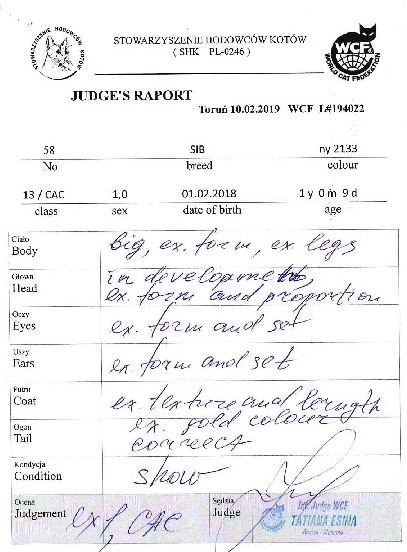 STOWARZYSZENIE HODOWCÓW KOTÓW
STOWARZYSZENIE HODOWCÓW KOTÓW
( SHK PL-0246 )
WCF
WORLD CAT FEDERATION
JUDGE'S RAPORT
Toruń 10.02.2019 WCF L#194022
58 SIB ny 2133
No breed colour
13 / CAC 1,0 01.02.2018 1 y 0 m 9 d
class sex date of birth age
Ciało
Body big, ex. form, ex legs
Głowa
Head in developmett,
ex. form and proportion
Oczy
Eyes ex. form and set
Uszy
Ears ex. form and set
Futro
Coat ex. texture and length
ex. gold colour
Ogon
Tail correct
Kondycja
Condition show
Ocena
Judgement ex1, CAC
Sędzia
Judge
Int. Judge WCF
TATIANA ESINA
Russia - Moscow